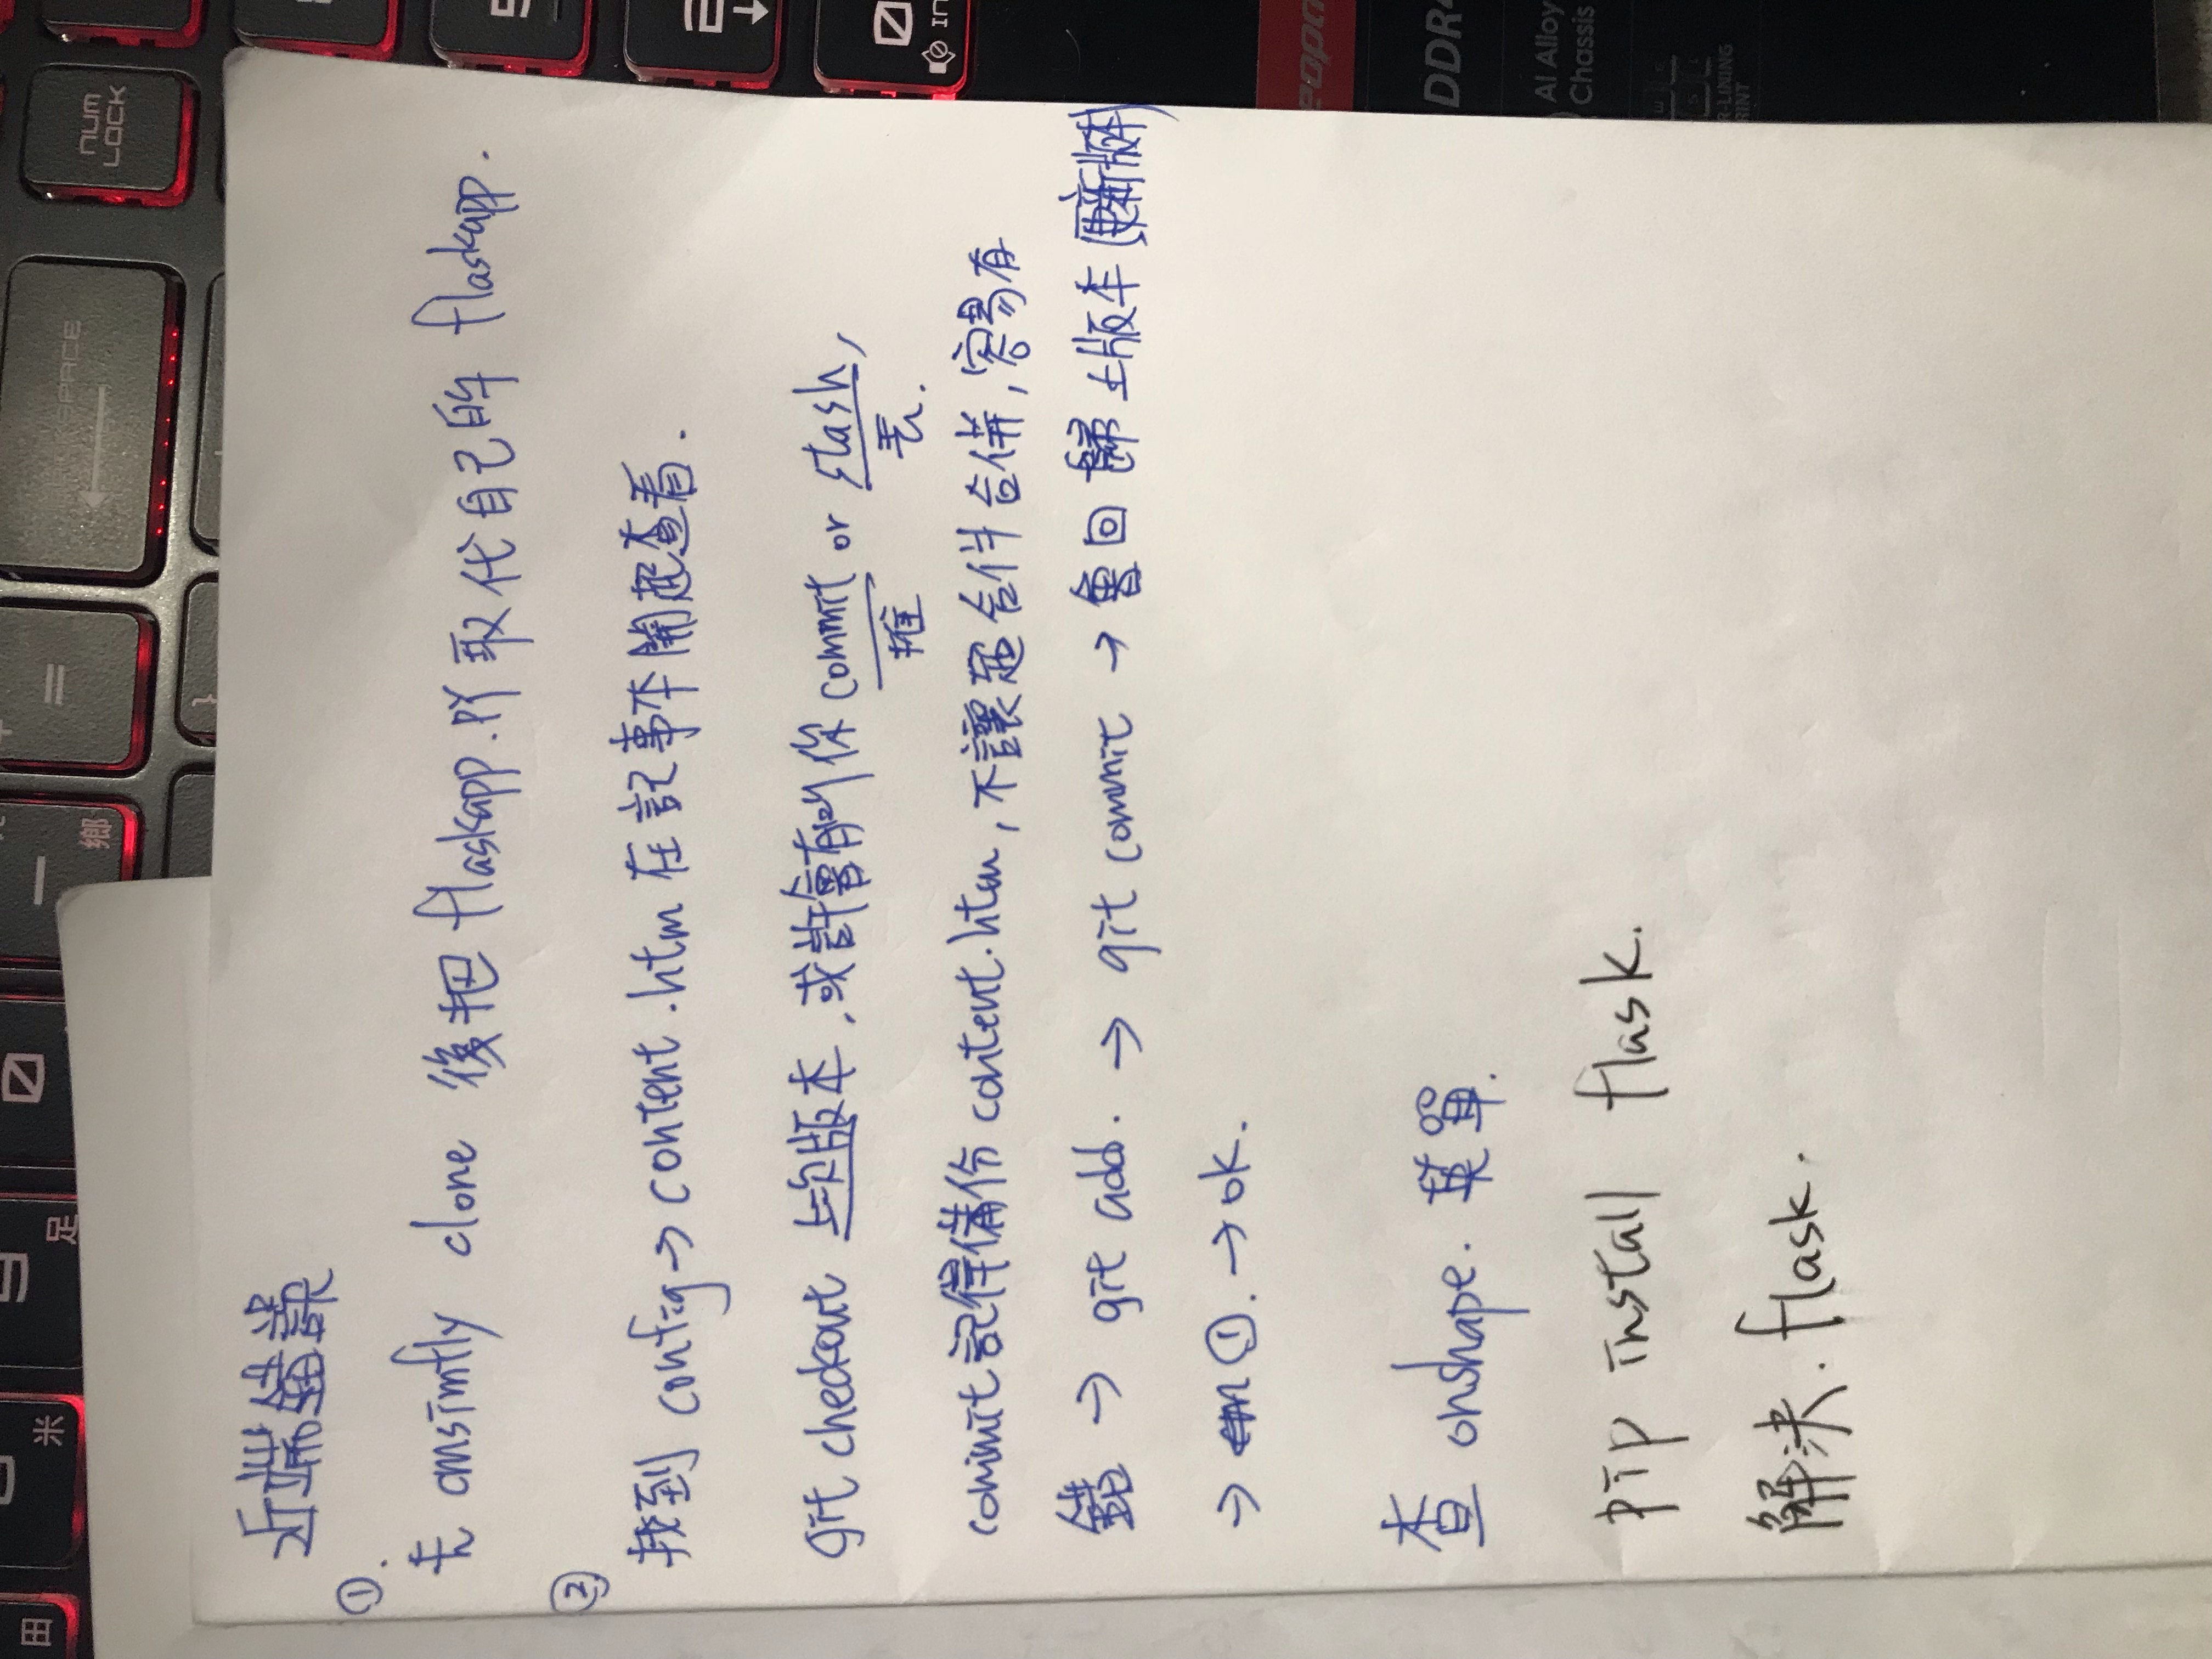 田 米 足 0 一 鄉 = BACKSPACE NUM LOCK
近端錯誤
①.
去 cmsimfly clone 後把 flaskapp.py 取代自己的 flaskapp.
②
找到 config→content.htm 在記事本開起查看.
git checkout 上次版本,或許會有叫你 commit or stash,
推 丟.
commit 記得備份 content.htm,不讓超 合併,容易有
錯 → git add. → git commit → 會回歸上版本(更新版本)
→ ①. → ok.
查 onshape. 菜單.
pip install flask.
解決. flask.
DDR4
Al Alloy
Chassis